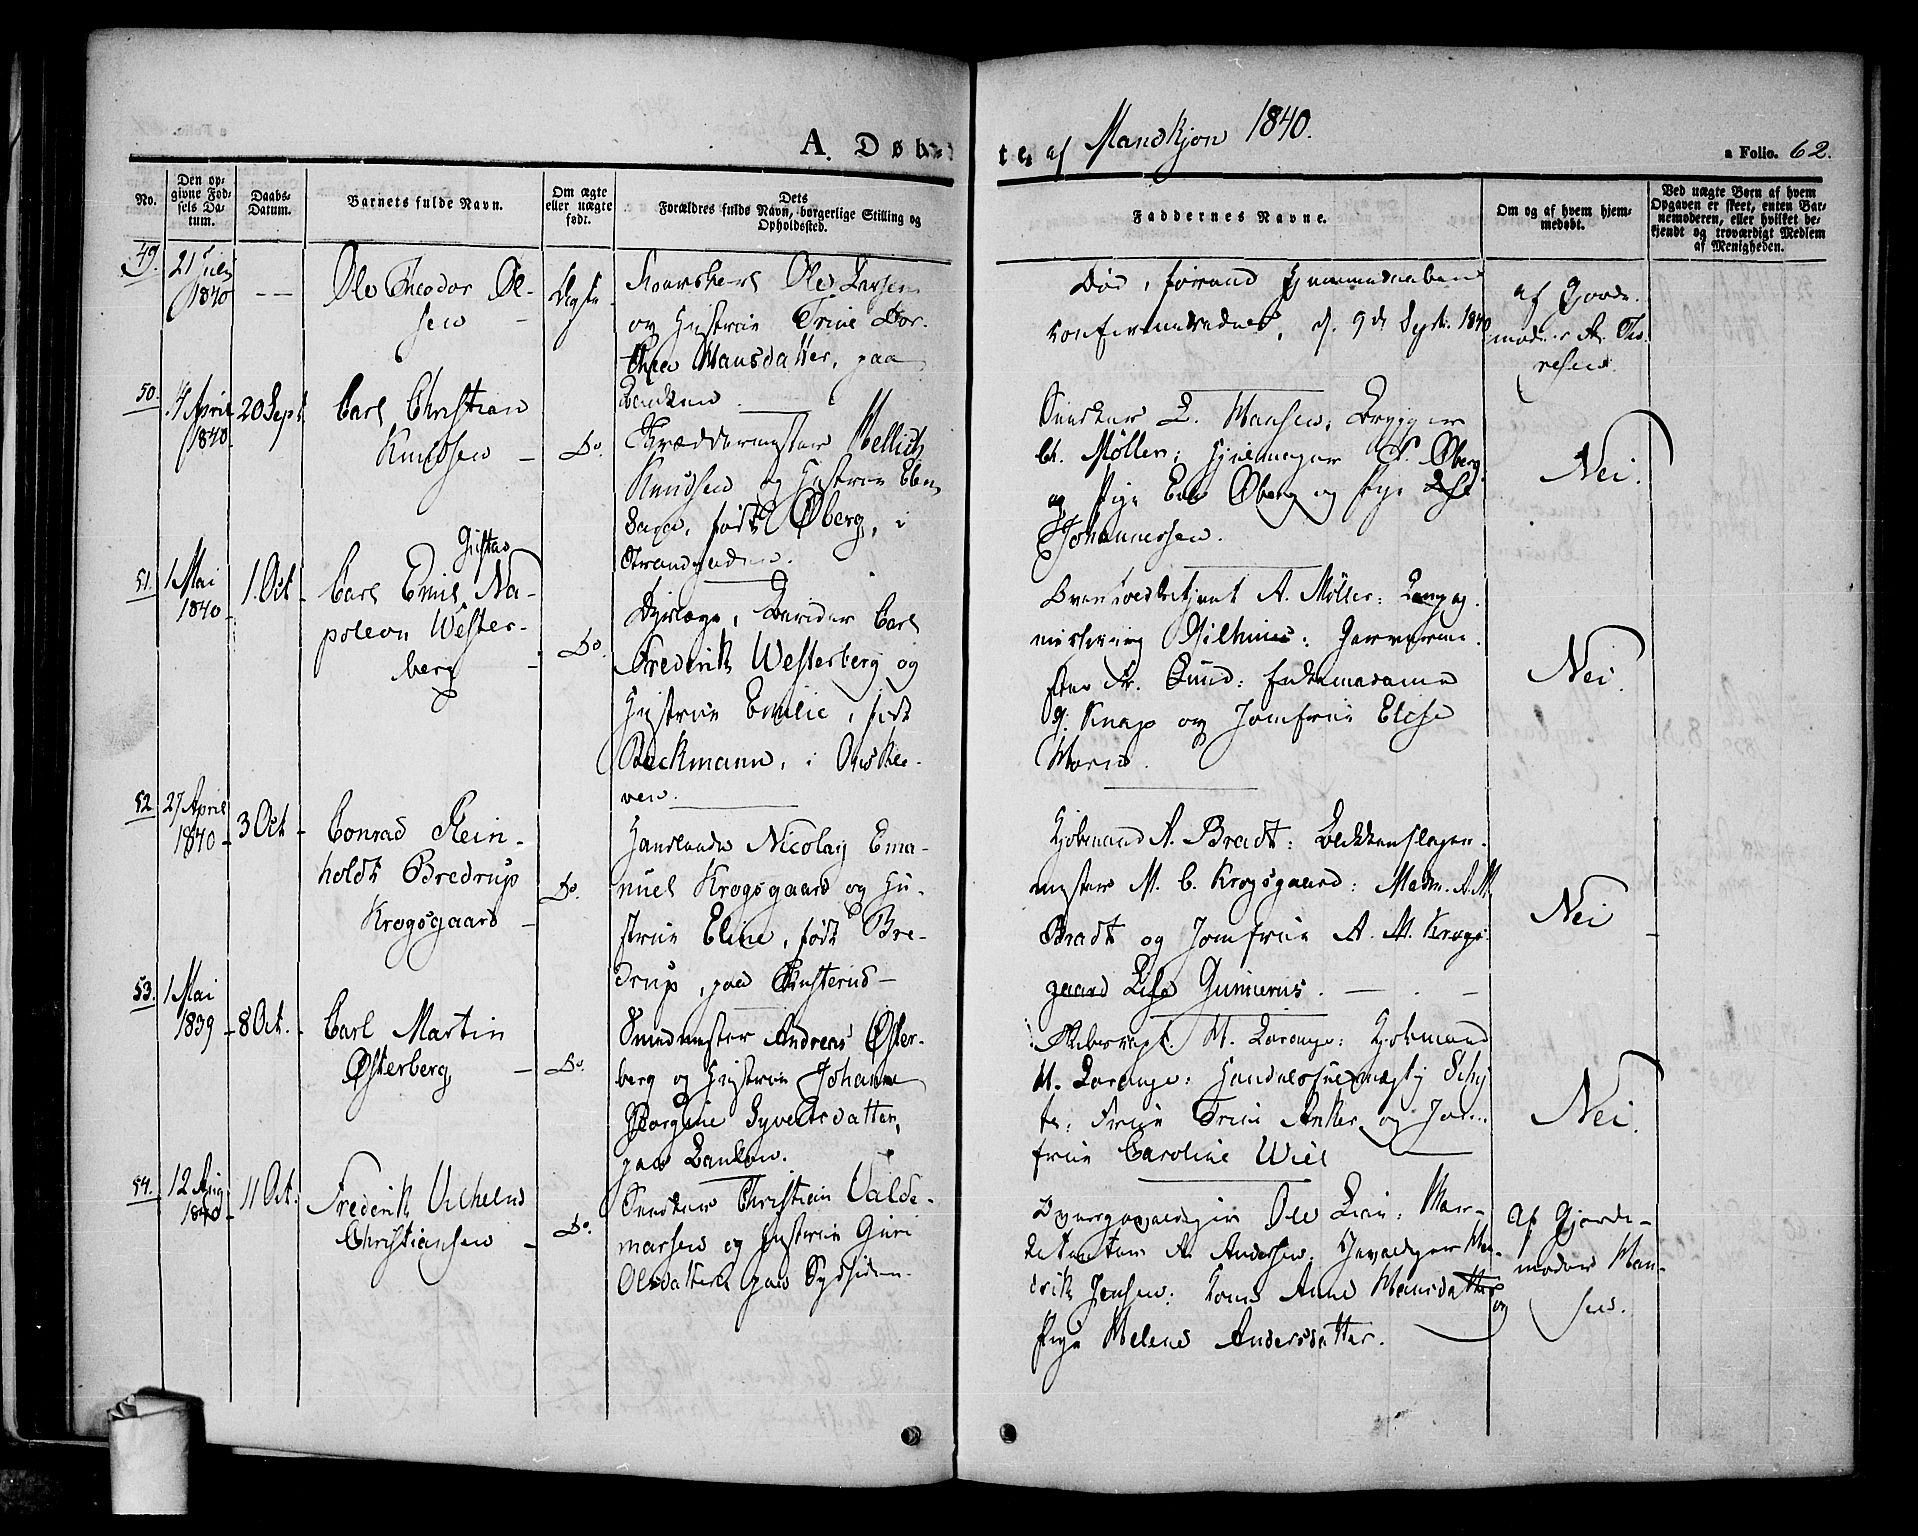 A. Døbte af Mandkjøn 1840.
a Folio. 62.
No.
Den opgivne Fødsels Datum.
Daabs-Datum.
Barnets fulde Navn.
Om ægte eller uægte født.
Dets Forældres fulde Navn, borgerlige Stilling og Opholdssted.
Faddernes Navne.
Om og af hvem hjemmedøbt.
Ved uægte Børn af hvem Opgaven er skeet, enten Barnemoderen, eller hvilket bekjendt og troværdigt Medlem af Menigheden.
49.
21 July
1840
Ole Theodor Ol-
sen
Ægte
Ole Larsen
og Hustrue Trine Dor-
thea Hansdatter, paa
Banken.
Død, forend Hjemmedaaben
confirmeredes, d. 9de Sept. 1840
af Gjorde-
moder A. Tho-
resen.
50.
4 April
1840
20 Sept.
Carl Christian
Knudsen
Do.
Skræddermester Mellich
Knudsen og Hustrue Elen
Sara, født Øberg, i
Strandgaden.
Snedker L. Hansen, Brygger
Ct. Møller; Øberg
og Pige Eva Øberg og Pige
Johannessen.
Nei.
51.
1 Mai
1840
1. Oct
Gustav
Carl Emil Na-
poleon Wester-
berg
Do.
Dyrlæge, Berider Carl
Frederik Westerberg og
Hustrue Emilie, født
Backmann, i
ven.
A. Møller:
Garverme-
ster Fr. Lund: Enkemadame
G. Knap og Jomfrue Elise
Nei.
52
27 April
1840
3 Oct
Conrad Rein-
holdt Bredrup
Krogsgaard
Do.
Handlende Nicolay Ema-
nuel Krogsgaard og Hu-
strue Eline, født Bre-
drup, paa
Kjøbmand A. Bradt: Blikkenslager-
mester M. C. Krogsgaard: Madm. A. M.
Bradt og Jomfrue A. M. Krogs-
gaard Lise Gunnerus.
Nei
53.
1 Mai
1839
8 Oct.
Carl Martin
Østerberg
Do.
Smedmester Andreas Øster-
berg og Hustrue Johanne
Jørgine Syvertsdatter,
paa Banken.
Skibscapt. M. Lorange: Kjøbmand
H. Lorange: Handelsfuldmægtig Schy
te: Frue Trine Anker og Jom-
frue Caroline Wiel
Nei.
54.
12 Aug
1840
11 Oct.
Frederik Vilhelm
Christiansen
Do.
Snedker Christian Valde-
marsen og Hustrue Guri
Olsdatter paa Sydsiden.
Ole Lie: Mar-
ketenter A. Andersen; Gevaldiger Hen-
drik Jensen; Kone Anne Hansdatter
og
Pige Helene Andersdatter.
af Gjorde-
moder Han-
sen.